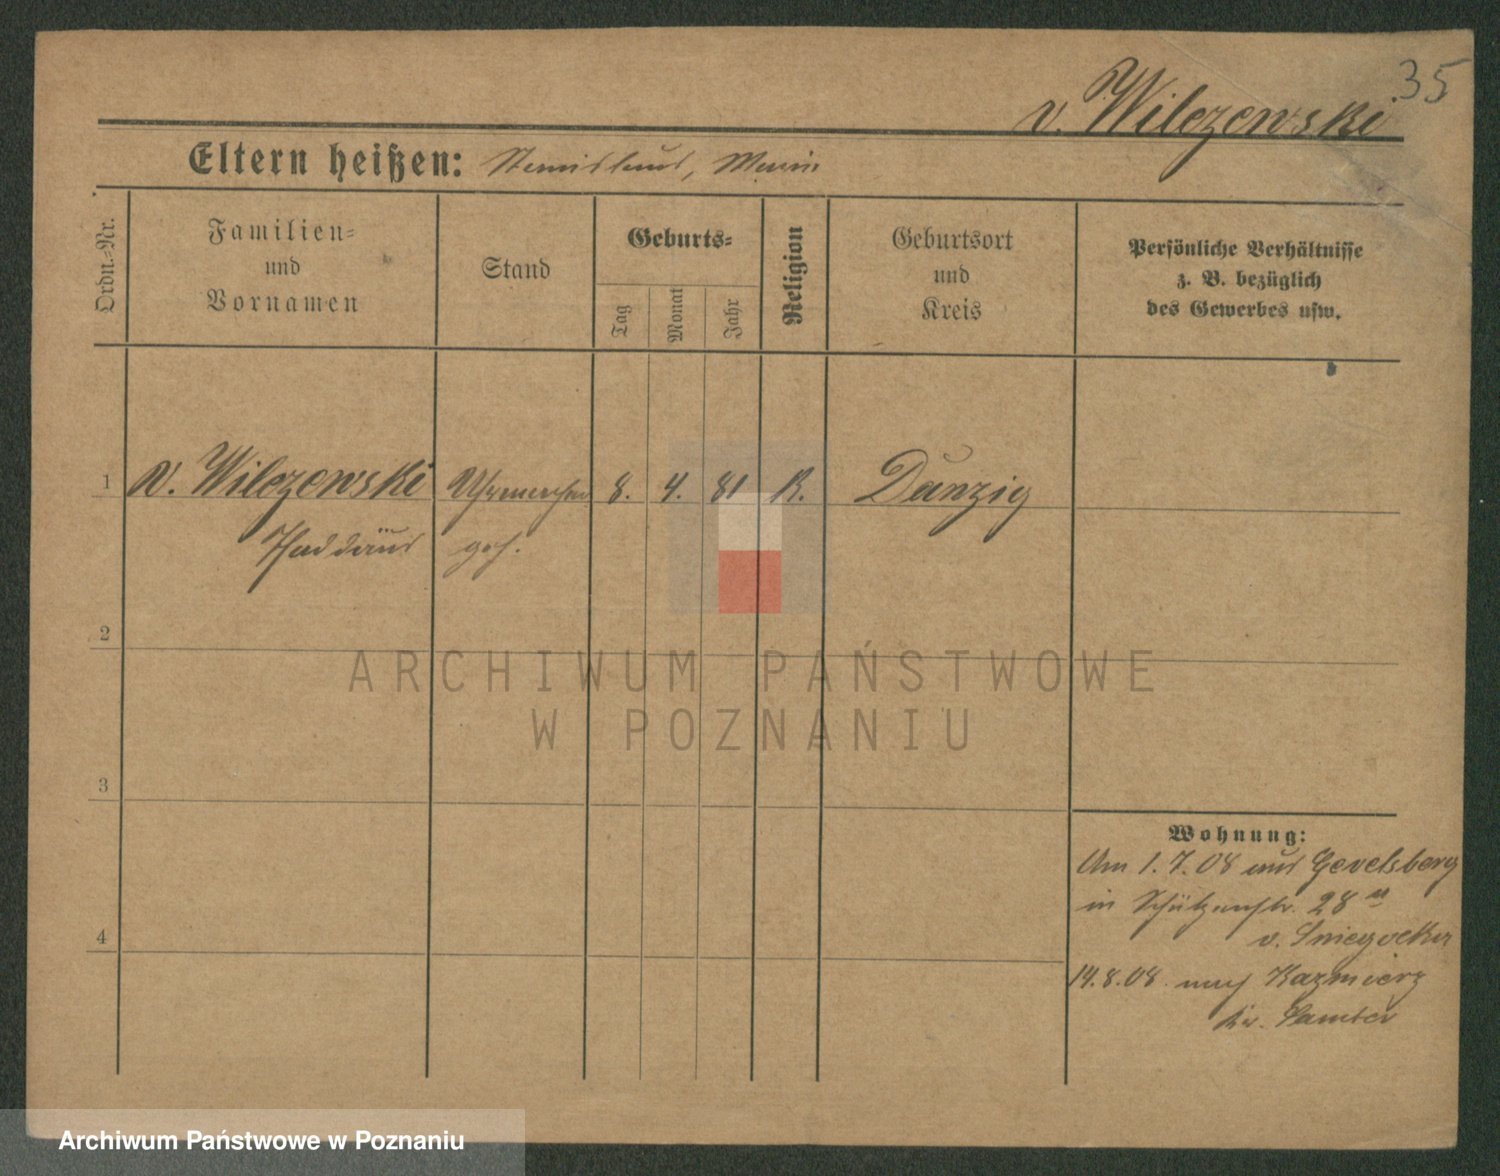 35
v. Wilczewski
Eltern heißen: Stanislaus, Maria
Ordn.-Nr.
Familien-
und
Vornamen
Stand
Geburts-
Tag
Monat
Jahr
Religion
Geburtsort
und
Kreis
Persönliche Verhältnisse
z. B. bezüglich
des Gewerbes usw.
1 v. Wilczewski Uhrmacher 8. 4. 81 K. Danzig
Thaddäus geh.
2
3
4
Wohnung:
Am 1.7.08 aus Gevelsberg
in Schützenstr. 28 a
v.
14.8.08 nach Kazmierz
Kr. Samter
ARCHIWUM PAŃSTWOWE
W POZNANIU
Archiwum Państwowe w Poznaniu